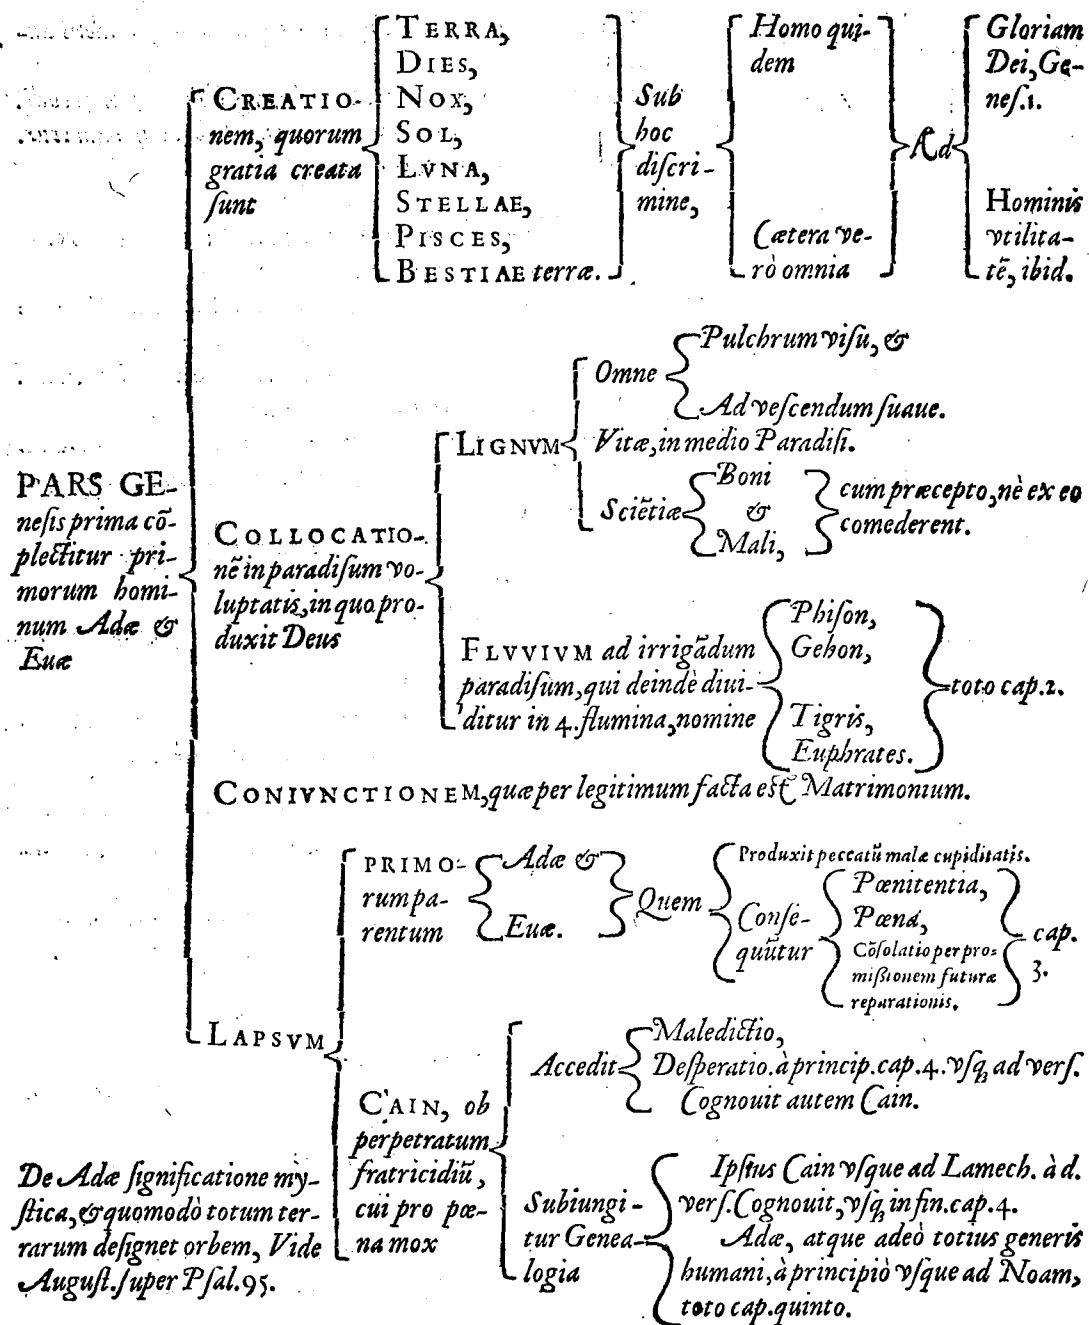 PARS GE-
nesis prima cō-
plectitur pri-
morum homi-
num Adæ &
Euæ
CREATIO-
nem, quorum
gratia creata
sunt
TERRA,
DIES,
NOX,
SOL,
LVNA,
STELLAE,
PISCES,
BESTIAE terræ.
Sub
hoc
discri-
mine,
Homo qui-
dem
Cætera ve-
rò omnia
Ad
Gloriam
Dei, Ge-
nes.1.
Hominis
vtilita-
tē, ibid.
COLLOCATIO-
nē in paradisum vo-
luptatis, in quo pro-
duxit Deus
LIGNVM
Omne
Pulchrum visu, &
Ad vescendum suaue.
Vitæ, in medio Paradisi.
Sciētiæ
Boni
&
Mali,
cum præcepto, nè ex eo
comederent.
FLVVIVM ad irrigādum
paradisum, qui deindè diui-
ditur in 4. flumina, nomine
Phison,
Gehon,
Tigris,
Euphrates.
toto cap.2.
CONIVNCTIONEM, quæ per legitimum facta est Matrimonium.
LAPSVM
PRIMO-
rum pa-
rentum
Adæ &
Euæ.
Quem
Produxit peccatū malæ cupiditatis.
Conse-
quūtur
Pœnitentia,
Pœna,
Cōsolatio per pro-
missionem futuræ
reparationis.
cap.
3.
CAIN, ob
perpetratum
fratricidiū,
cui pro pœ-
na mox
Accedit
Maledictio,
Desperatio. à princip. cap. 4. vsq; ad vers.
Cognouit autem Cain.
Subiungi-
tur Genea-
logia
Ipsius Cain vsque ad Lamech. à d.
vers. Cognouit, vsq; in fin. cap. 4.
Adæ, atque adeò totius generis
humani, à principiò vsque ad Noam,
toto cap. quinto.
De Adæ significatione my-
stica, & quomodò totum ter-
rarum designet orbem, Vide
August. super Psal. 95.